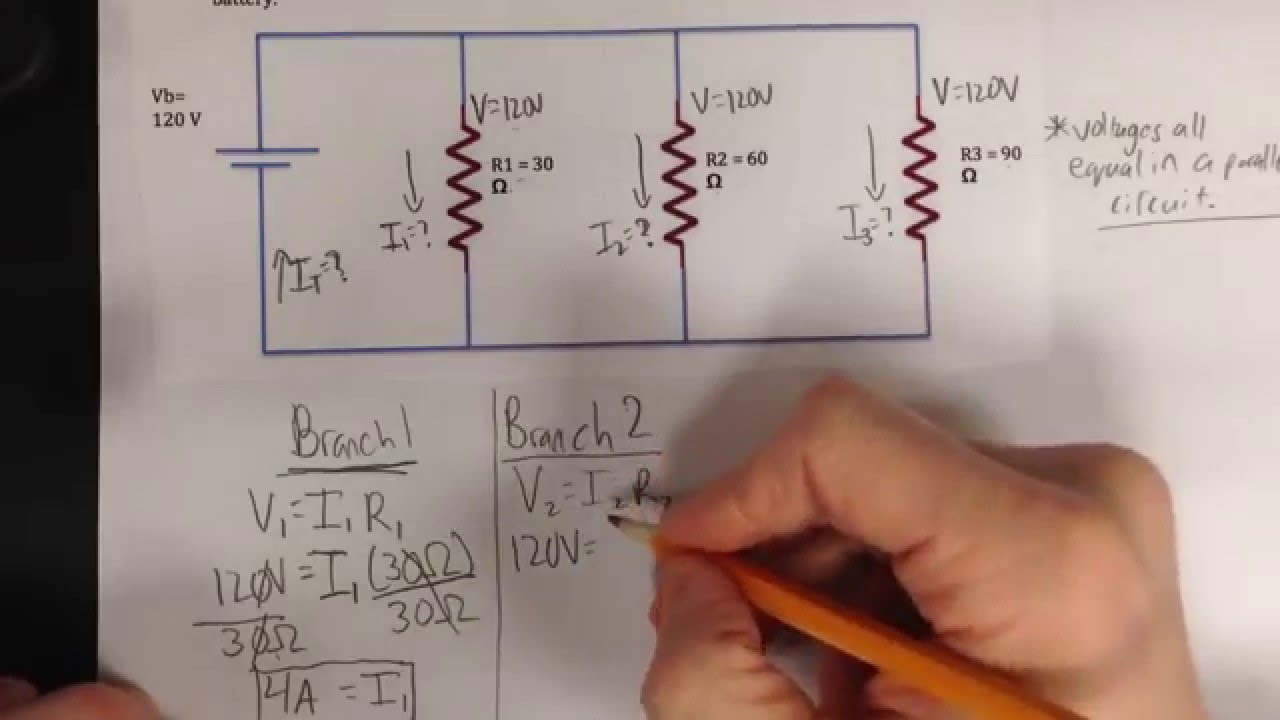 battery.
Vb=
120 V
V=120V
R1 = 30
Ω
I₁=?
V=120V
R2 = 60
Ω
I₂=?
V=120V
R3 = 90
Ω
I₃=?
*voltages all
equal in a
circuit.
↑I_T=?
Branch 1
V₁=I₁R₁
120V=I₁(30Ω)
30Ω 30Ω
4A = I₁
Branch 2
V₂=I₂R₂
120V=